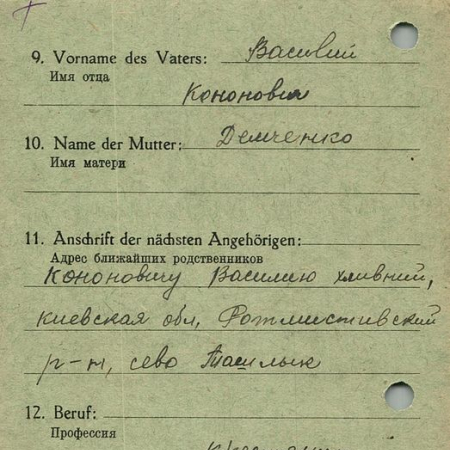 9. Vorname des Vaters: Василий
Имя отца
Кононович
10. Name der Mutter: Демченко
Имя матери
11. Anschrift der nächsten Angehörigen:
Адрес ближайших родственников
Кононовичу Василию
киевская обл, Ротмистивский
р-н, сево Ташлык
12. Beruf:
Профессия